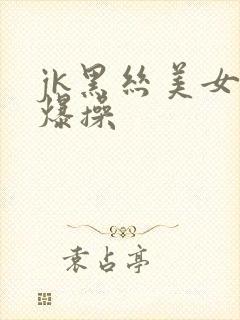 jk黑丝美女
爆操
袁占亭